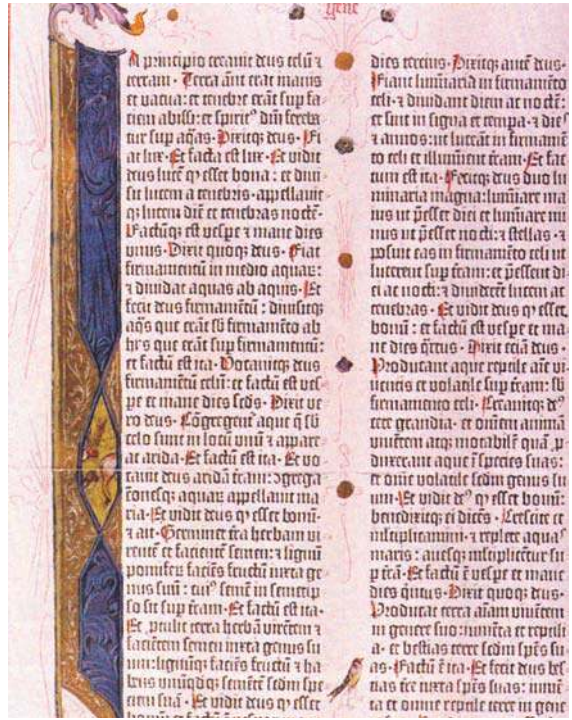 gene
A principio creauit deus celū ⁊
terram. Terra autē erat inanis
et vacua: et tenebre erāt sup faciem
abissi: et spiritꝰ dn̄i ferebatur
sup aq̄as. Dixitqꝫ deus. Fiat
lux. Et facta est lux. Et vidit
deus lucē q̄ esset bona: et diuisit
lucem a tenebris. appellauitqꝫ
lucem diē et tenebras noctē.
Factūqꝫ est vespe et mane dies
vnus. Dixit quoqꝫ deus. Fiat
firmamentū in medio aquaꝝ:
⁊ diuidat aquas ab aquis. Et
fecit deus firmamētū: diuisitqꝫ
aq̄s que erāt sb̄ firmamēto ab
hijs que erāt sup firmamentū:
et factū est ita. Vocauitqꝫ deus
firmamētū celū: et factū est vespe
et mane dies scd̄s. Dixit vero
deus. Cōgregent̄ aque q̄ sb̄
celo sunt in locū vnū ⁊ appareat
arida. Et factū est ita. Et vocauit
deus aridā terrā: ꝯgregacōnesqꝫ
aquaꝝ appellauit maria.
Et vidit deus q̄ esset bonū.
⁊ ait. Germinet t̄ra herbam virentē
et facientē semen: ⁊ lignū
pomiferū faciēs fructū iuxta genus
suū: cuiꝰ semē in semetipso
sit sup t̄ram. Et factū est ita.
Et ꝓtulit terra herbā virētem ⁊
faciētem semen iuxta genus suum:
lignūqꝫ faciēs fructū ⁊ habēs
vnūqdqꝫ semētē scd̄m speciem
suā. Et vidit deus q̄ esset
dies tercius. Dixitqꝫ autē deus.
Fiant luminaria in firmamēto
celi. ⁊ diuidant diem ac noctē:
et sint in signa et tempa. ⁊ dies
⁊ annos: vt luceāt in firmamēto
celi et illuminēt t̄ram. Et factum
est ita. Fecitqꝫ deus duo luminaria
magna: lumiāre maius
vt p̄esset diei et lumiāre minus
vt p̄esset nocti: ⁊ stellas. ⁊
posuit eas in firmamēto celi vt
lucerent sup t̄ram: et p̄essent diei
ac nocti: ⁊ diuiderēt lucem ac
tenebras. Et vidit deus q̄ esset
bonū: et factū est vespe et mane
dies q̄rtus. Dixit eciā deus.
Producant aque reptile aīe viuentis
et volatile sup t̄ram: sb̄
firmamento celi. Creauitqꝫ deꝰ
cete grandia. et omnē animā
viuētem atqꝫ motabilē quā ꝓduxerant
aque ī species suas:
et om̄e volatile scd̄m genus suum.
Et vidit deꝰ q̄ esset bonū:
benedixitqꝫ ei dicēs. Crescite et
mltiplicamini. ⁊ replete aquas
maris: auesqꝫ mltiplicētur sup
t̄rā. Et factū ē vespe et mane
dies quītus. Dixit quoqꝫ deus.
Producat terra aīam viuētem
in genere suo: iumēta et reptilia.
et bestias terre scd̄m sp̄es suas.
Factū ē ita. Et fecit deus bestias
t̄re iuxta sp̄es suas: iumēta
et omne reptile terre in gene